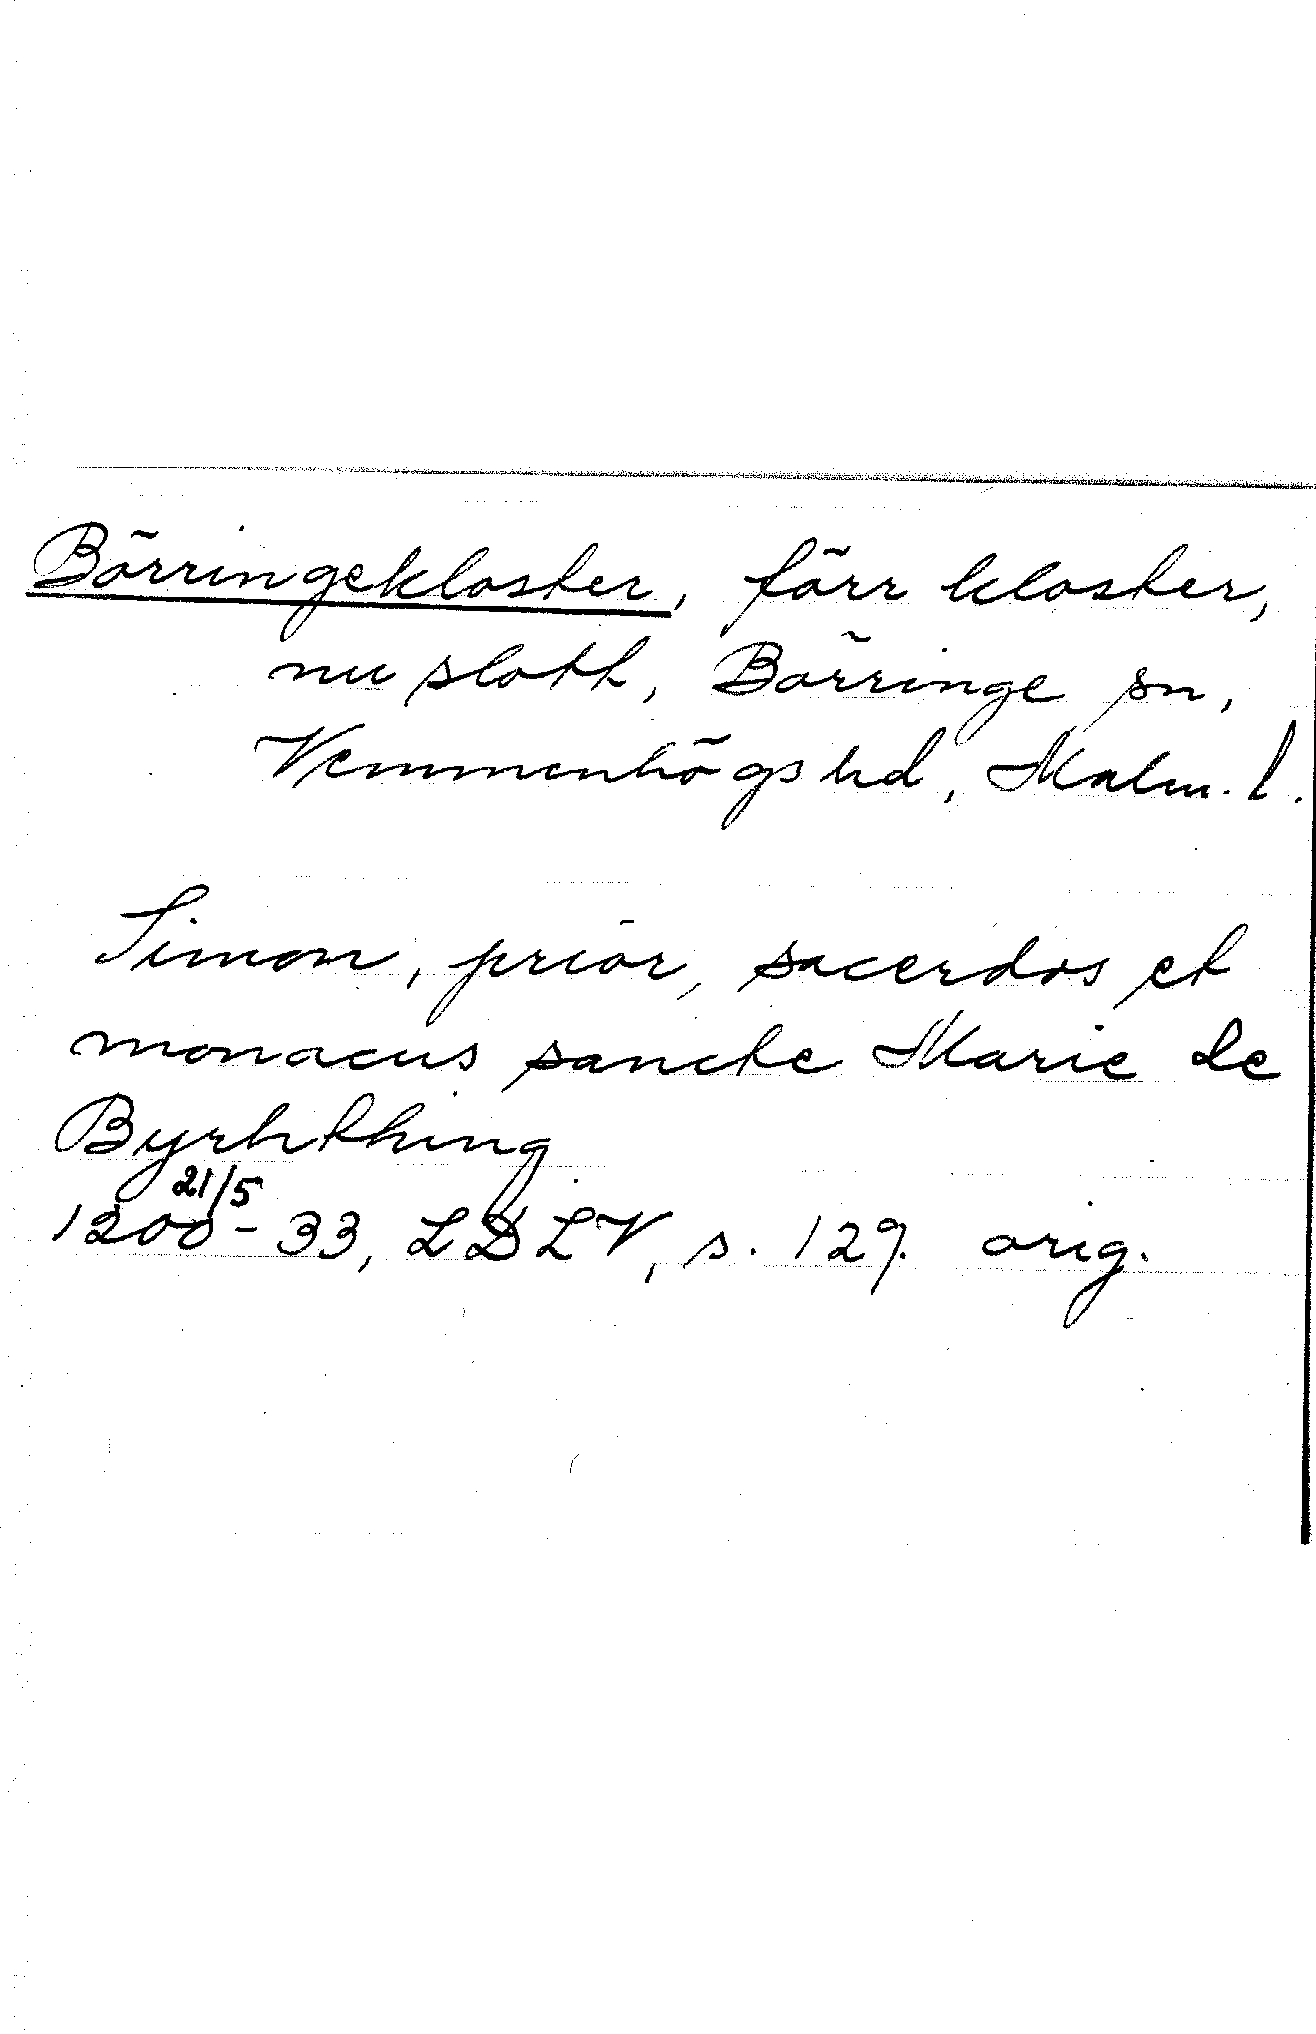 Börringekloster, förr kloster,
nu slott, Börringe sn,
Vemmenhögs hd, Malm. l.
Simon, prior, sacerdos et
monacus sancte Marie de
Byrhthing
21/5
1200-33, LDLV, s. 129. orig.